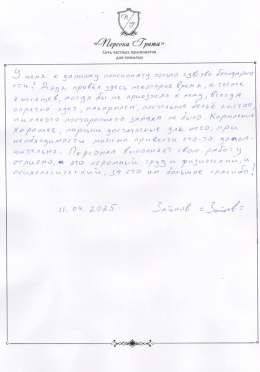 «Персона Грата»
Сеть частных пансионатов
для пожилых
У меня к данному пансионату только чувство благодарно
сти! Дядя провел здесь некоторое время, а точнее
месяцев, когда бы не приезжал к нему, всегда
опрятно одет, накормлен, постельное бельё чистое,
никакого постороннего запаха не было. Кормление
хорошее, порции достаточные для того, при
необходимости можно привезти что-то допол-
нительно. Персонал выполняет свою работу
отлично, а это огромный труд и физический, и
психологический, за что им большое спасибо!
11.04.2025